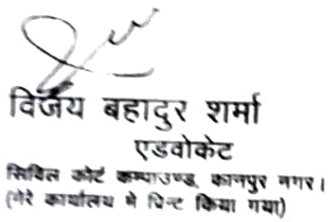 विजय बहादुर शर्मा
एडवोकेट
सिविल कोर्ट कम्पाउण्ड, कानपुर नगर।
(मेरे कार्यालय मे प्रिन्ट किया गया)